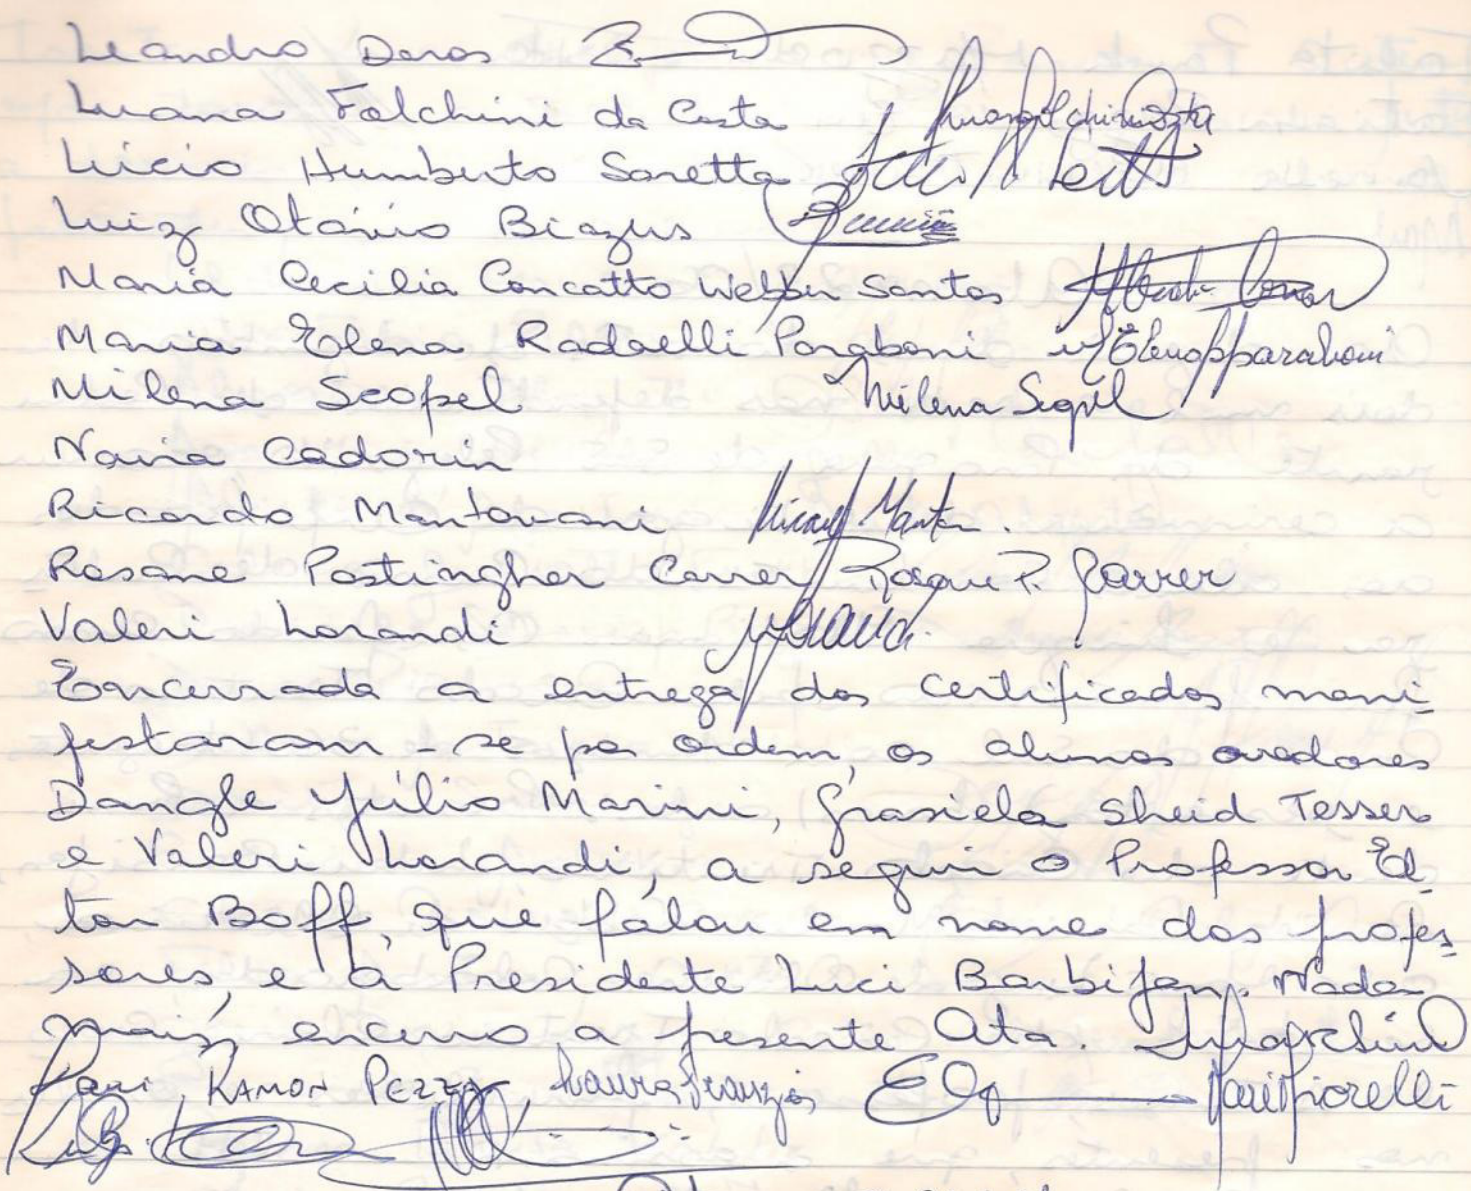 Leandro Deros
Luana Falchini da Costa
Lúcio Humberto Saretta
Luiz Otávio Biazus
Maria Cecilia Concatto Webber Santos
Maria Elena Radaelli Paraboni M Elena P Paraboni
Milena Scopel Milena Scopel
Navia Cadorin
Ricardo Mantovani
Rosane Postingher Carrer Rosane P. Carrer
Valeri Lorandi
Encerrada a entrega dos certificados mani-
festaram-se por ordem, os alunos oradores
Dangle Júlio Marini, Grasiela Sheid Tesser
e Valeri Lorandi, a seguir o Professor El-
ton Boff, que falou em nome dos profes-
sores, e a Presidente Luci Barbijan. Nada
mais, encerro a presente Ata.
RAMON PEZZ